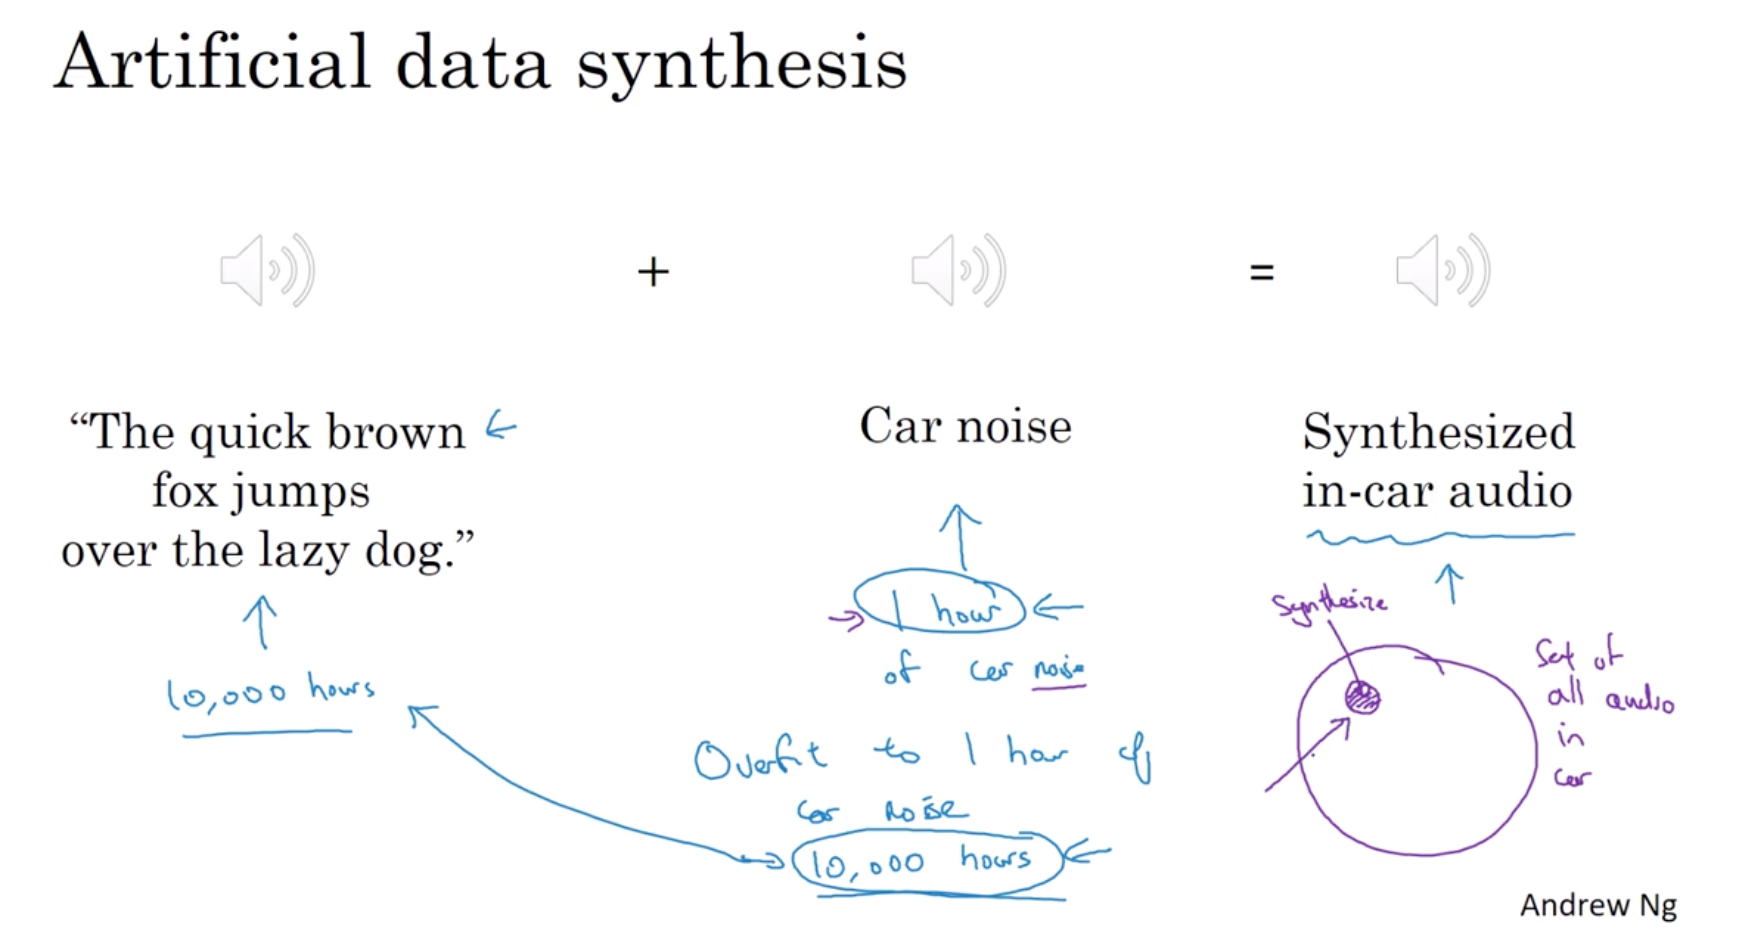 Artificial data synthesis
+
=
“The quick brown
fox jumps
over the lazy dog.”
10,000 hours
Car noise
1 hour
of car noise
Overfit to 1 hour of
car noise
10,000 hours
Synthesized
in-car audio
Synthesize
Set of
all audio
in
car
Andrew Ng